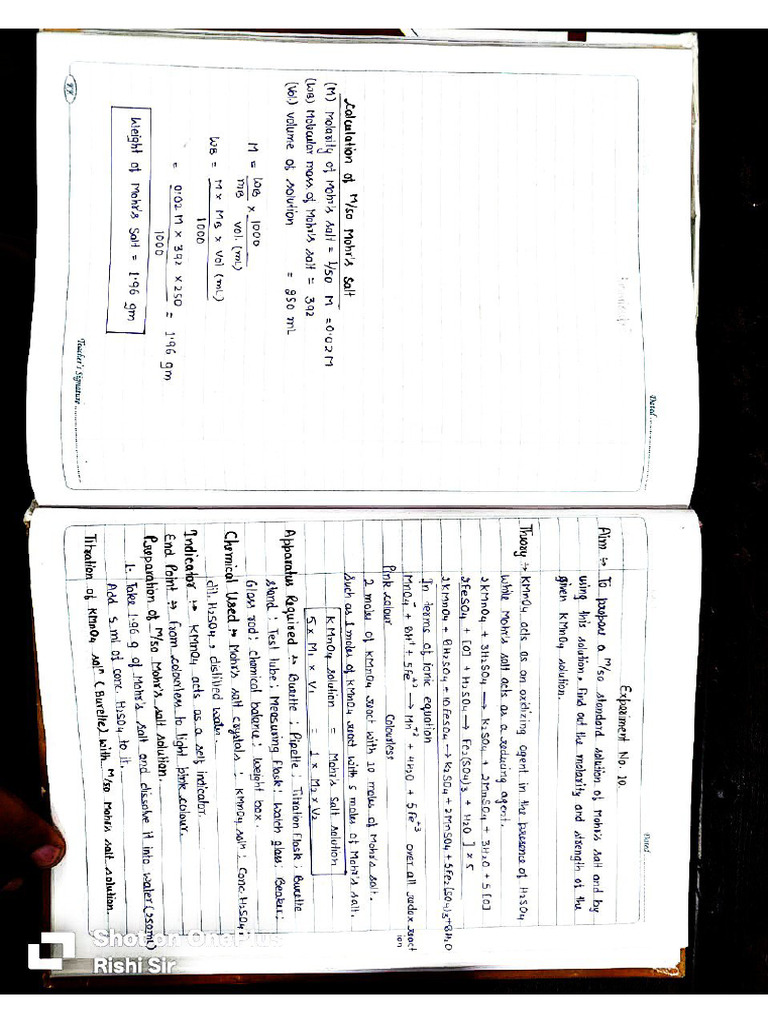 Dated
Calculation of M/50 Mohr's Salt
(M) Molarity of Mohr's salt = 1/50 M = 0.02 M
(WB) Molecular mass of Mohr's salt = 392
(Vol.) volume of solution = 250 mL
M = WB/mB × 1000/vol.(mL)
WB = M × MB × Vol (mL)/1000
= 0.02 M × 392 × 250/1000 = 1.96 gm
Weight of Mohr's Salt = 1.96 gm
Teacher's Signature
Dated
Experiment No. 10.
Aim → To prepare a M/50 standard solution of Mohr's salt and by
using this solution, find out the molarity and strength of the
given KMnO4 solution.
Theory → KMnO4 acts as an oxidizing agent in the presence of H2SO4
while Mohr's salt acts as a reducing agent.
2KMnO4 + 3H2SO4 → K2SO4 + 2MnSO4 + 3H2O + 5[O]
2FeSO4 + [O] + H2SO4 → Fe2(SO4)3 + H2O ] × 5
2KMnO4 + 8H2SO4 + 10FeSO4 → K2SO4 + 2MnSO4 + 5Fe2(SO4)3 + 8H2O
In terms of ionic equation
MnO4⁻ + 8H⁺ + 5Fe⁺² → Mn⁺² + 4H2O + 5Fe⁺³ over all redox react
ion
Pink colour Colourless
2 moles of KMnO4 react with 10 moles of Mohr's salt.
Such as 1 moles of KMnO4 react with 5 moles of Mohr's salt.
KMnO4 solution = Mohr's salt solution
5 × M1 × V1 = 1 × M2 × V2
Apparatus Required → Burette ; Pipette ; Titration flask ; Burette
stand ; Test tube ; Measuring flask ; Watch glass ; Beaker ;
Glass rod ; chemical balance ; weight box.
Chemical Used → Mohr's salt crystals ; KMnO4 solⁿ ; Conc. H2SO4 ;
dil. H2SO4 , distilled water.
Indicator → KMnO4 acts as a self indicator.
End Point → From colourless to light pink colour.
Preparation of M/50 Mohr's salt solution.
1. Take 1.96 g of Mohr's salt and dissolve it into water (250ml)
Add 5 ml of conc. H2SO4 to it.
Titration of KMnO4 solⁿ (Burette) with M/50 Mohr's salt solution.
Shot on OnePlus
Rishi Sir